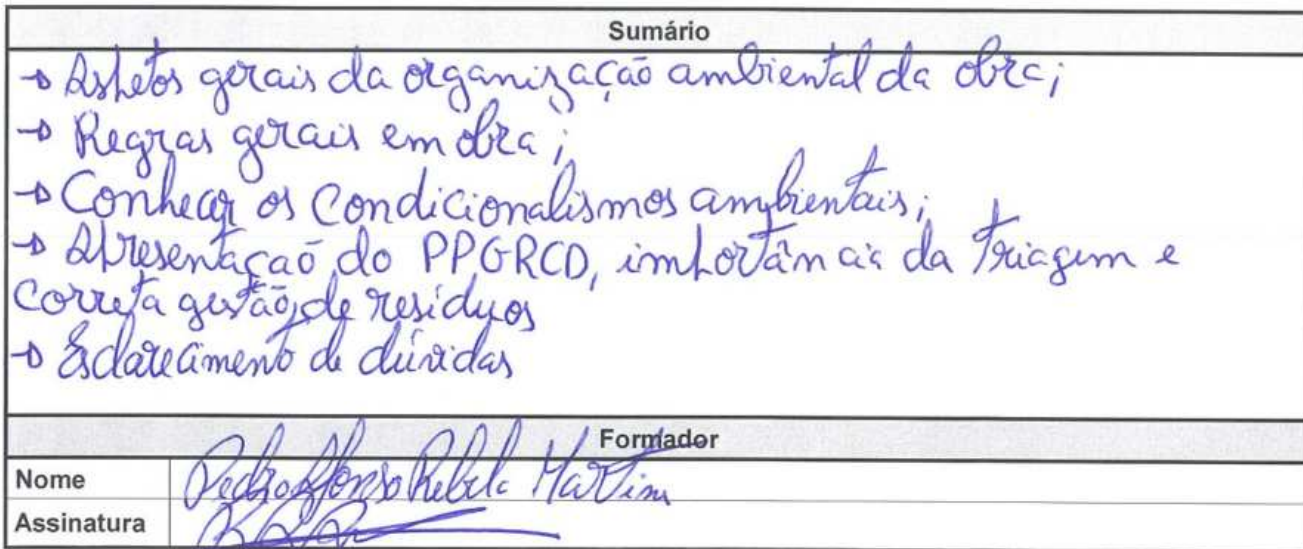 Sumário
→ Aspetos gerais da organização ambiental da obra;
→ Regras gerais em obra;
→ Conhecer os condicionalismos ambientais;
→ Apresentação do PPGRCD, importância da triagem e
correta gestão de resíduos
→ Esclarecimento de dúvidas
Formador
Nome Pedro Afonso Rebelo Martins
Assinatura